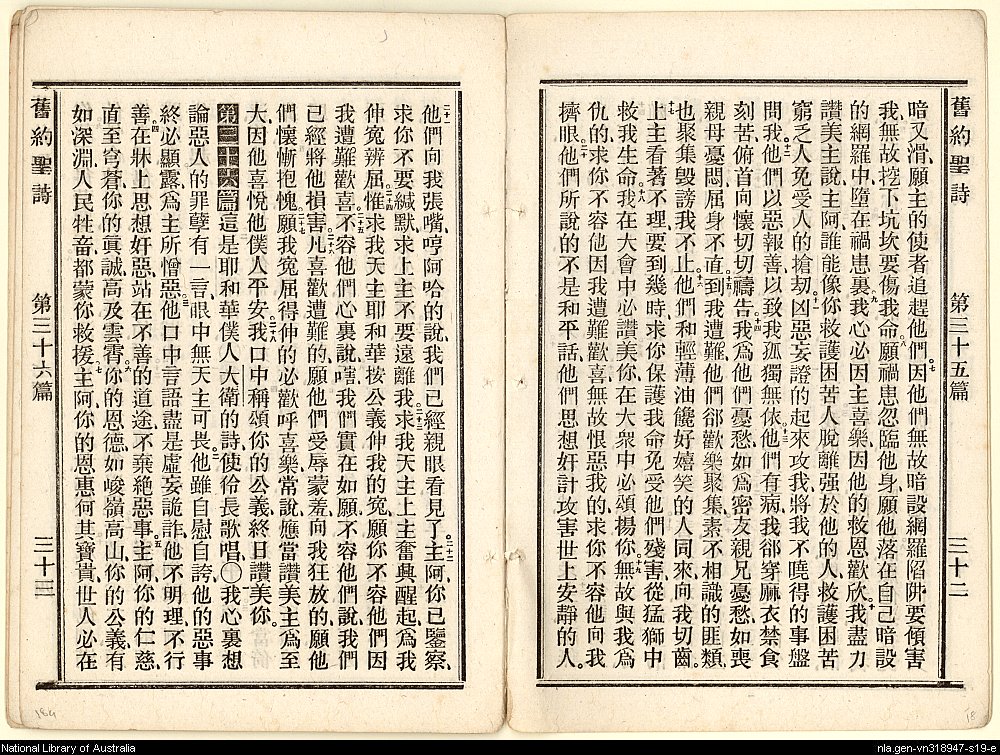 舊約聖詩 第三十五篇 三十二
暗又滑、願主的使者追趕他們。七因他們無故暗設網羅陷阱、要傾害
我、無故挖下坑坎、要傷我命。八願禍患忽臨他身、願他落在自己暗設
的網羅中、墮在禍患裏。九我心必因主喜樂、因他的救恩歡欣。十我盡力
讚美主說、主阿、誰能像你、救護困苦人脫離強於他的人、救護困苦
窮乏人免受人的搶刼。十一凶惡妄證的起來攻我、將我不曉得的事盤
問我。十二他們以惡報善、以致我孤獨無依。十三他們有病、我卻穿麻衣、禁食
刻苦、俯首向懷切切禱告。十四我爲他們憂愁、如爲密友親兄憂愁、如喪
親母憂悶、屈身不直。十五到我遭難、他們卻歡樂聚集、素不相識的匪類、
也聚集毀謗我不止。十六他們和輕薄油饞好嬉笑的人同來、向我切齒。
十七上主看著不理、要到幾時、求你保護我命、免受他們殘害、從猛獅中
救我生命。十八我在大會中必讚美你、在大衆中必頌揚你。十九無故與我爲
仇的、求你不容他因我遭難歡喜、無故恨惡我的、求你不容他向我
擠眼。二十他們所說的不是和平話、他們思想奸計攻害世上安靜的人。
二十一他們向我張嘴、哼阿哈的說、我們已經親眼看見了。二十二主阿、你已鑒察、
求你不要緘默、求上主不要遠離我。二十三求我天主上主奮興醒起、爲我
仲寃辨屈。二十四惟求我天主耶和華按公義伸我的寃、願你不容他們因
我遭難歡喜。二十五不容他們心裏說、嗐、我們實在如願、不容他們說、我們
已經將他損害。二十六凡喜歡遭難的、願他們受辱蒙羞、向我狂放的、願他
們懷慚抱愧。二十七願我寃屈得伸的、必歡呼喜樂、常說、應當讚美主爲至
大、因他喜悅他僕人平安。二十八我口中稱頌你的公義、終日讚美你。
第三十六篇 這是耶和華僕人大衛的詩、使伶長歌唱、〇一我心裏想
論惡人的罪孽有一言、眼中無天主可畏。二他雖自慰自誇、他的惡事
終必顯露、爲主所憎惡。三他口中言語盡是虛妄詭詐、他不明理、不行
善。四在牀上思想奸惡、站在不善的道途、不棄絕惡事。五主阿、你的仁慈
直至穹蒼、你的眞誠、高及雲霄。六你的恩德如峻嶺高山、你的公義有
如深淵、人民牲畜、都蒙你救援。七主阿、你的恩惠何其寶貴、世人必在
舊約聖詩 第三十六篇 三十三
18a
18
National Library of Australia
nla.gen-vn318947-s19-e